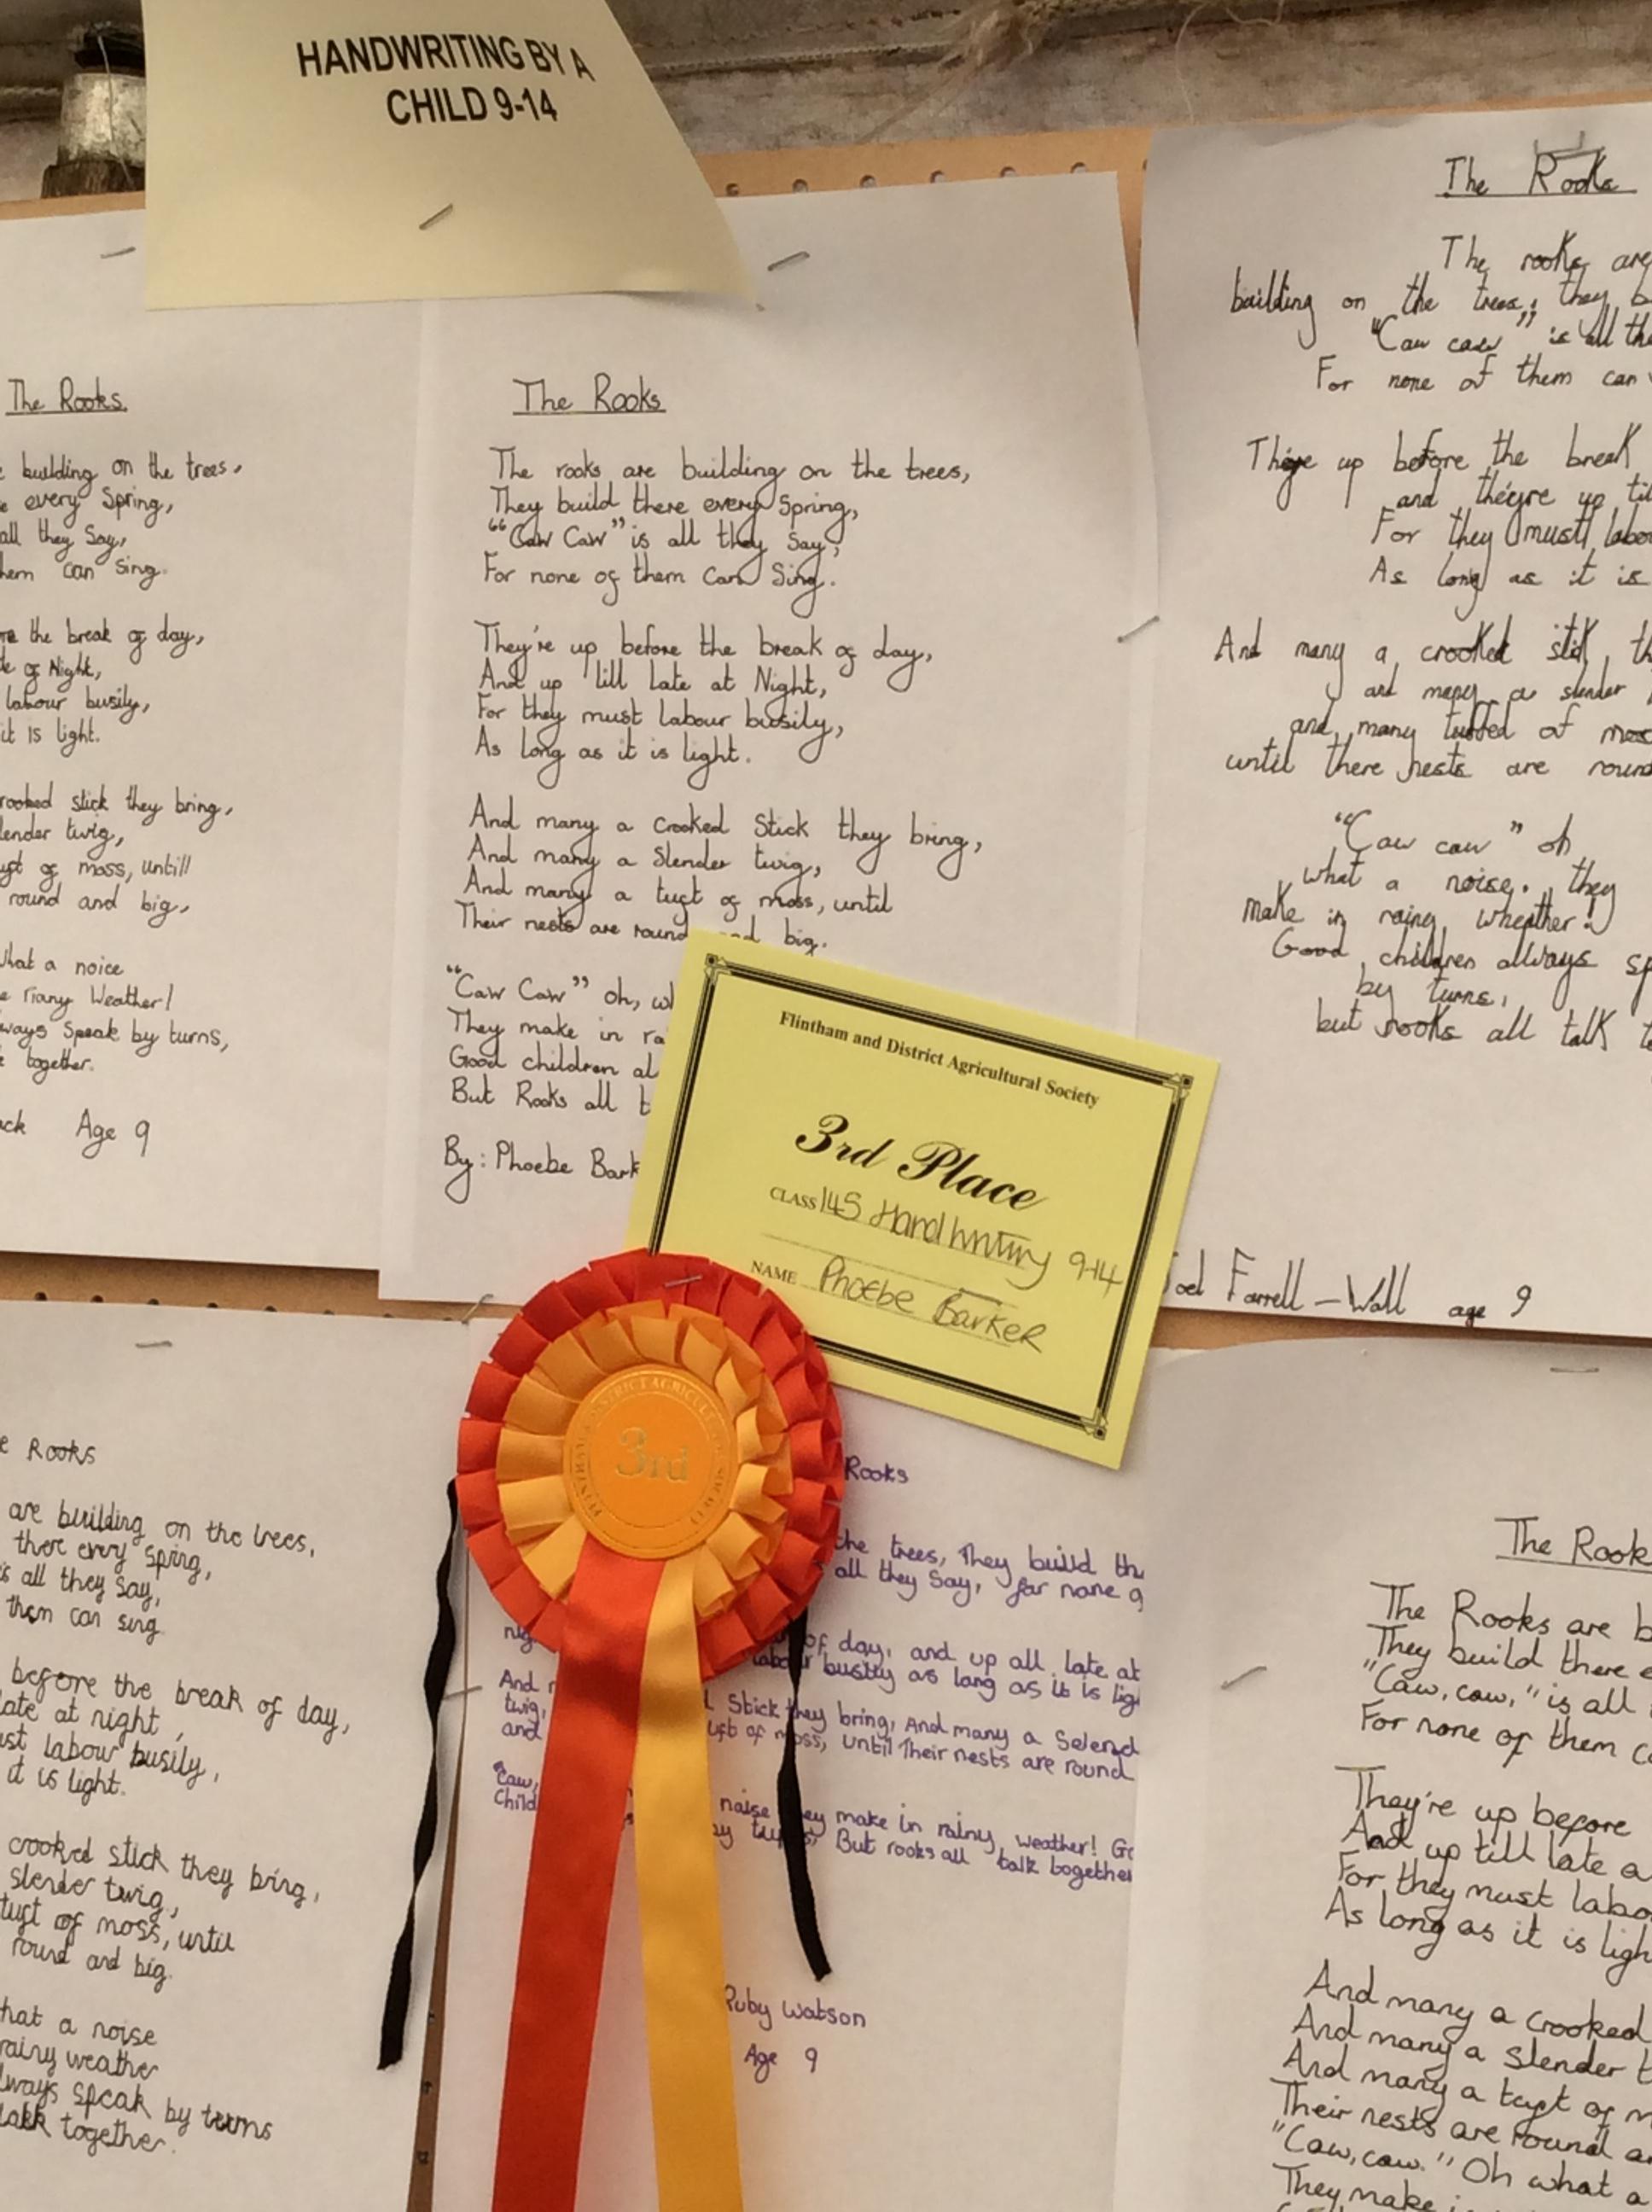 HANDWRITING BY A
CHILD 9-14
The Rooks.
building on the trees,
every Spring,
all they Say,
can sing.
the break of day,
of Night,
labour busily,
it is light.
stick they bring,
twig,
of moss, untill
round and big,
what a noice
riany Weather!
Speak by turns,
together.
Age 9
The Rooks
The rooks are building on the trees,
They build there every Spring,
"Caw Caw" is all they Say,
For none of them can Sing.
They're up before the break of day,
And up 'till late at Night,
For they must labour busily,
As long as it is light.
And many a crooked Stick they bring,
And many a Slender twig,
And many a tuft of moss, until
Their nests are round and big.
"Caw Caw" oh,
They make in
Good children
But Rooks all
By: Phoebe
Flintham and District Agricultural Society
3rd Place
CLASS 145 Handwriting 9-14
NAME Phoebe Barker
3rd
The Rooks
The rooks are
building on the trees, they
"Caw caw" is all
For none of them can
up before the break
and they're up
For they must
As long as it is
And many a crooked
and many a slender
and many tuffed of
until there nests are
"Caw caw" oh
what a noise. they
make in rainy wheather!
Good children always
by turns,
but rooks all talk
Farrell-Wall age 9
Rooks
are building on the trees,
there every Spring,
all they Say,
them can sing.
before the break of day,
late at night,
labour busily,
it is light.
crooked stick they bring,
slender twig,
tuft of moss, until
round and big.
what a noise
rainy weather
always speak by turns
together.
Rooks
the trees, They build
all they Say, for none
of day, and up all late at
labour busily as long as it is
And
twig, Stick they bring, And many a
and of moss, until Their nests are round
"Caw, noise they make in rainy weather!
by turns, But rooks all talk together
Ruby Watson
Age 9
The
The Rooks are
They build there
"Caw, caw," is all
For none of them
They're up before
And up till late
For they must
As long as it is
And many a crooked
And many a slender
And many a tuft of
Their nests are round
"Caw, caw." Oh what a
They make